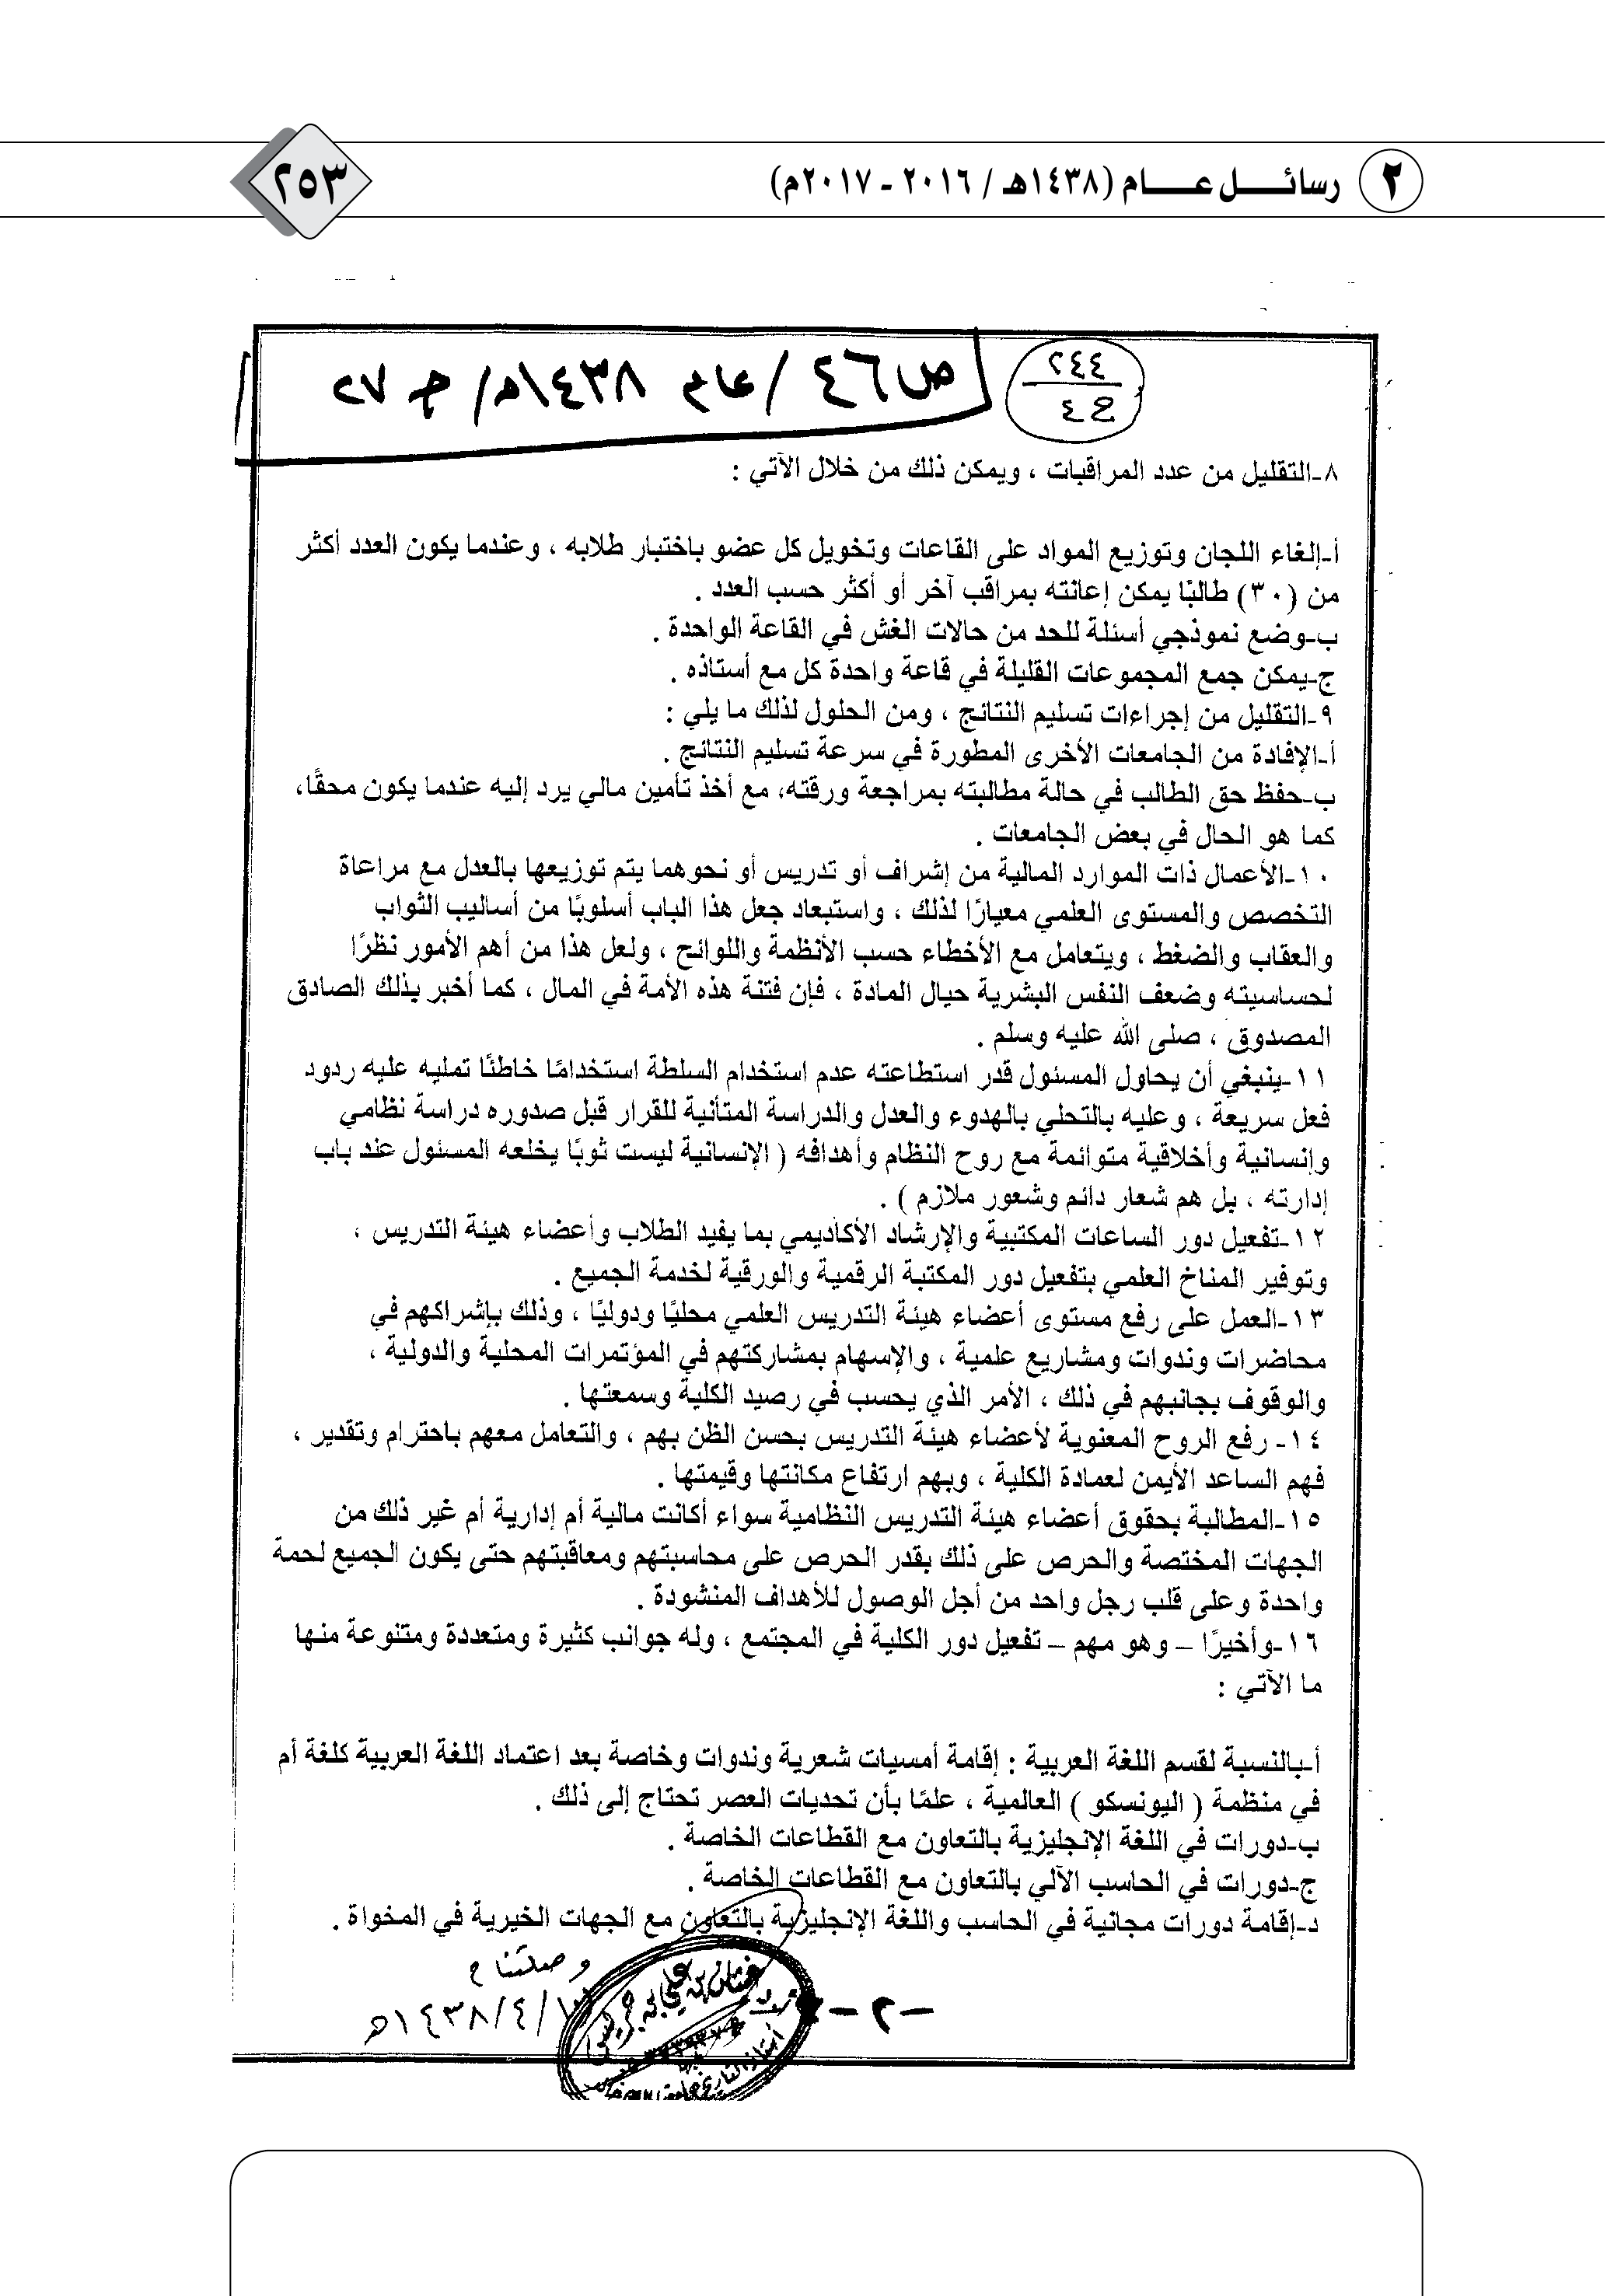 ٢ رسائل عام (١٤٣٨هـ / ٢٠١٦ - ٢٠١٧م)
٢٥٣
٢٤٤
ج ٤
ص ٤٦ / عام ١٤٣٨هـ / ج ٢٧
٨-التقليل من عدد المراقبات ، ويمكن ذلك من خلال الآتي :
أ-إلغاء اللجان وتوزيع المواد على القاعات وتخويل كل عضو باختبار طلابه ، وعندما يكون العدد أكثر
من (٣٠) طالبًا يمكن إعانته بمراقب آخر أو أكثر حسب العدد .
ب-وضع نموذجي أسئلة للحد من حالات الغش في القاعة الواحدة .
ج-يمكن جمع المجموعات القليلة في قاعة واحدة كل مع أستاذه .
٩-التقليل من إجراءات تسليم النتائج ، ومن الحلول لذلك ما يلي :
أ-الإفادة من الجامعات الأخرى المطورة في سرعة تسليم النتائج .
ب-حفظ حق الطالب في حالة مطالبته بمراجعة ورقته، مع أخذ تأمين مالي يرد إليه عندما يكون محقًا،
كما هو الحال في بعض الجامعات .
١٠-الأعمال ذات الموارد المالية من إشراف أو تدريس أو نحوهما يتم توزيعها بالعدل مع مراعاة
التخصص والمستوى العلمي معيارًا لذلك ، واستبعاد جعل هذا الباب أسلوبًا من أساليب الثواب
والعقاب والضغط ، ويتعامل مع الأخطاء حسب الأنظمة واللوائح ، ولعل هذا من أهم الأمور نظرًا
لحساسيته وضعف النفس البشرية حيال المادة ، فإن فتنة هذه الأمة في المال ، كما أخبر بذلك الصادق
المصدوق ، صلى الله عليه وسلم .
١١-ينبغي أن يحاول المسئول قدر استطاعته عدم استخدام السلطة استخدامًا خاطئًا تمليه عليه ردود
فعل سريعة ، وعليه بالتحلي بالهدوء والعدل والدراسة المتأنية للقرار قبل صدوره دراسة نظامي
وإنسانية وأخلاقية متوائمة مع روح النظام وأهدافه ( الإنسانية ليست ثوبًا يخلعه المسئول عند باب
إدارته ، بل هم شعار دائم وشعور ملازم ) .
١٢-تفعيل دور الساعات المكتبية والإرشاد الأكاديمي بما يفيد الطلاب وأعضاء هيئة التدريس ،
وتوفير المناخ العلمي بتفعيل دور المكتبة الرقمية والورقية لخدمة الجميع .
١٣-العمل على رفع مستوى أعضاء هيئة التدريس العلمي محليًا ودوليًا ، وذلك بإشراكهم في
محاضرات وندوات ومشاريع علمية ، والإسهام بمشاركتهم في المؤتمرات المحلية والدولية ،
والوقوف بجانبهم في ذلك ، الأمر الذي يحسب في رصيد الكلية وسمعتها .
١٤- رفع الروح المعنوية لأعضاء هيئة التدريس بحسن الظن بهم ، والتعامل معهم باحترام وتقدير ،
فهم الساعد الأيمن لعمادة الكلية ، وبهم ارتفاع مكانتها وقيمتها .
١٥-المطالبة بحقوق أعضاء هيئة التدريس النظامية سواء أكانت مالية أم إدارية أم غير ذلك من
الجهات المختصة والحرص على ذلك بقدر الحرص على محاسبتهم ومعاقبتهم حتى يكون الجميع لحمة
واحدة وعلى قلب رجل واحد من أجل الوصول للأهداف المنشودة .
١٦-وأخيرًا – وهو مهم – تفعيل دور الكلية في المجتمع ، وله جوانب كثيرة ومتعددة ومتنوعة منها
ما الآتي :
أ-بالنسبة لقسم اللغة العربية : إقامة أمسيات شعرية وندوات وخاصة بعد اعتماد اللغة العربية كلغة أم
في منظمة ( اليونسكو ) العالمية ، علمًا بأن تحديات العصر تحتاج إلى ذلك .
ب-دورات في اللغة الإنجليزية بالتعاون مع القطاعات الخاصة .
ج-دورات في الحاسب الآلي بالتعاون مع القطاعات الخاصة .
د-إقامة دورات مجانية في الحاسب واللغة الإنجليزية بالتعاون مع الجهات الخيرية في المخواة .
وصلتنا
/٤/١٤٣٨هـ
-٢-
بن علي بن جريس
أستاذ التاريخ